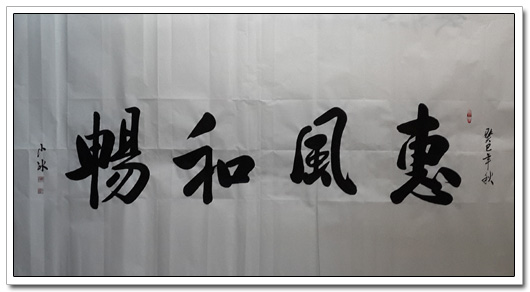 癸巳年秋
惠風和暢
小冰